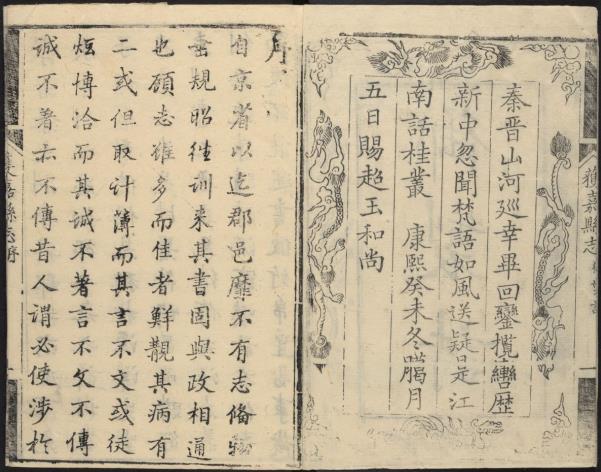 雅嘉縣志
秦晉山河廵幸畢回鑾攬轡歷
新中忽聞梵語如風送疑是江
南話桂叢 康熙癸未冬臘月
五日賜超玉和尚
序
自京省以迄郡邑靡不有志俻
垂規昭徃訓来其書固與政相通
也顧志雖多而佳者鮮觀其病有
二或但取計薄而其言不文或徒
炫博洽而其誠不著言不文不傳
誠不著亦不傳昔人謂必使涉於
縣志序